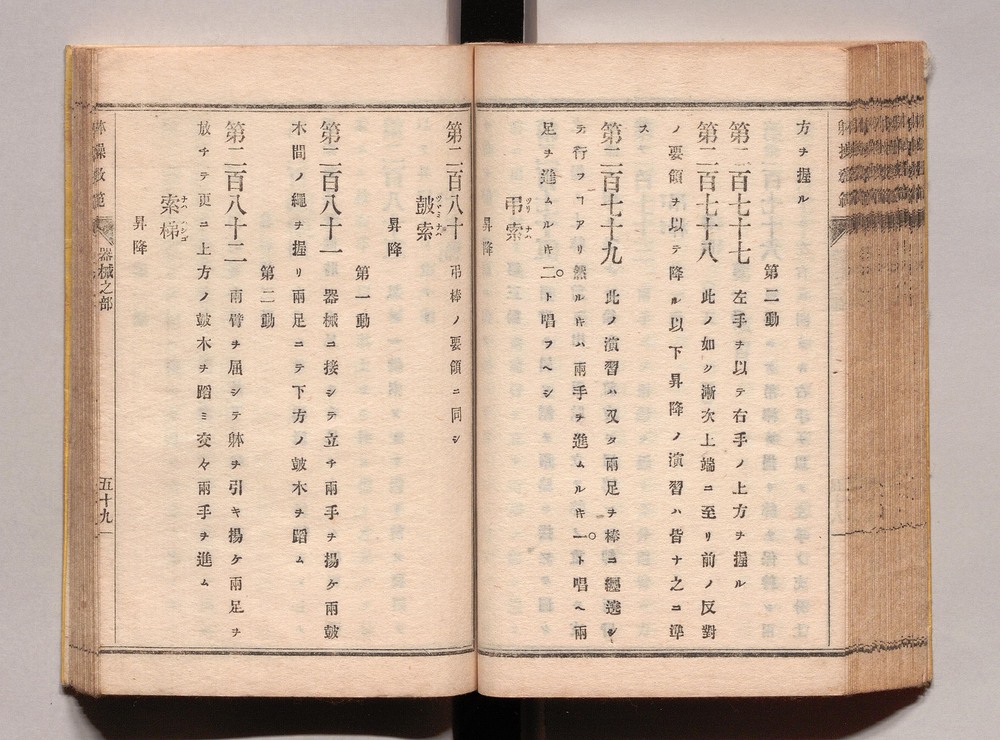 方ヲ握ル
第二動
第二百七十七 左手ヲ以テ右手ノ上方ヲ握ル
第二百七十八 此ノ如ク漸次上端ニ至リ前ノ反對
ノ要領ヲ以テ降ル以下昇降ノ演習ハ皆ナ之ニ準
ス
第二百七十九 此ノ演習ハ又タ兩足ヲ棒ニ纒遶シ
テ行フヿアリ然ルキハ兩手ヲ進ムルキ一ト唱ヘ兩
足ヲ進ムルキ二ト唱フヘシ
弔索 ツリナハ
昇降
第二百八十 弔棒ノ要領ニ同シ
皷索 ツヾミナハ
昇降
第一動
第二百八十一 器械ニ接シテ立チ兩手ヲ揚ケ兩皷
木間ノ繩ヲ握リ兩足ニテ下方ノ皷木ヲ蹈ム
第二動
第二百八十二 兩臂ヲ屈シテ躰ヲ引キ揚ケ兩足ヲ
放チテ更ニ上方ノ皷木ヲ蹈ミ交々兩手ヲ進ム
索梯 ナハハシゴ
昇降
躰操敎範 器械之部 五十九